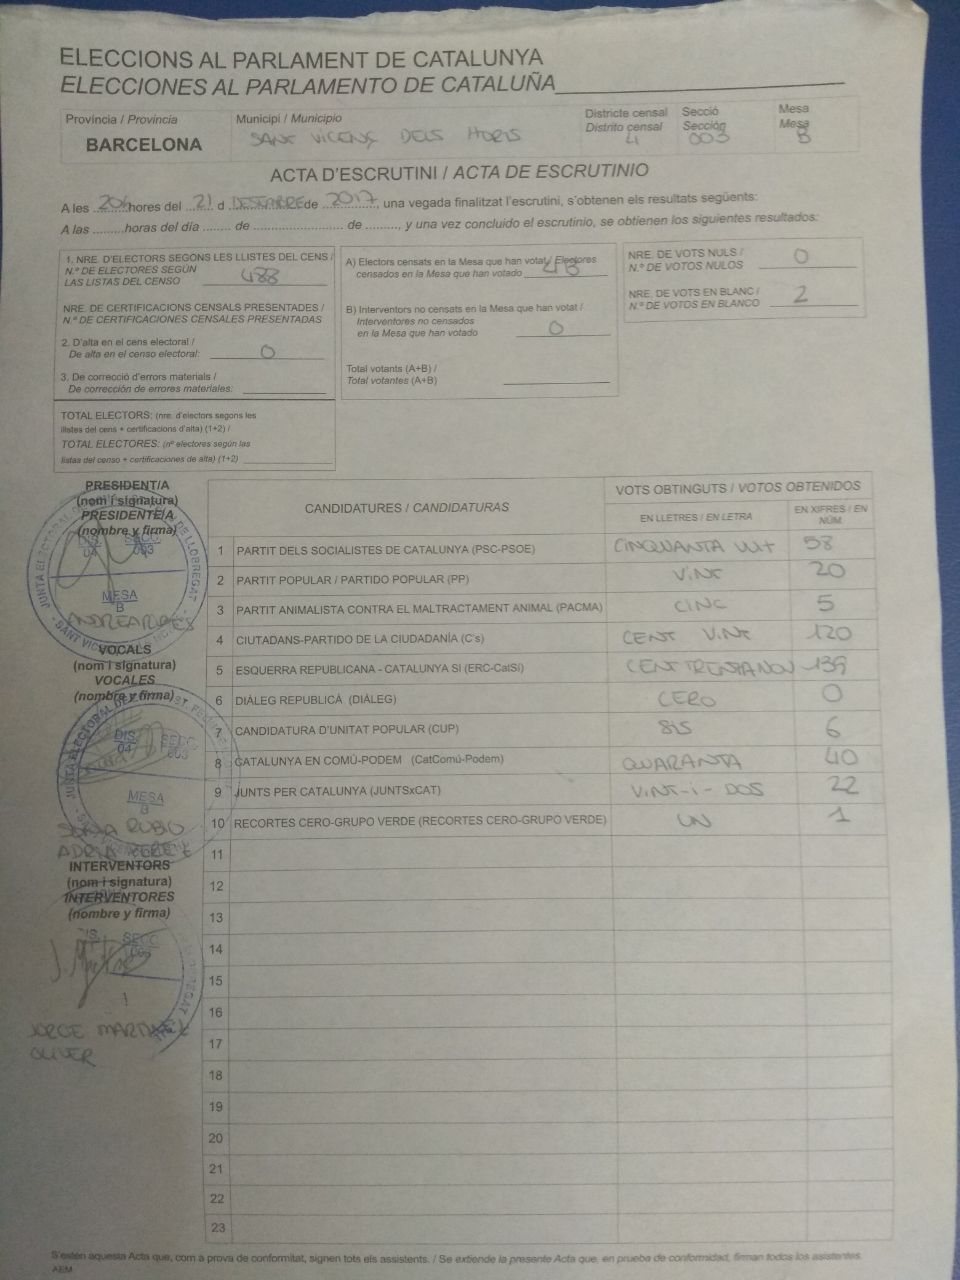 ELECCIONS AL PARLAMENT DE CATALUNYA
ELECCIONES AL PARLAMENTO DE CATALUÑA
Província / Provincia
BARCELONA
Municipi / Municipio
SANT VICENÇ DELS HORTS
Districte censal
Distrito censal
4
Secció
Sección
003
Mesa
Mesa
B
ACTA D'ESCRUTINI / ACTA DE ESCRUTINIO
A les hores del 21 d DESEMBRE de 2017, una vegada finalitzat l'escrutini, s'obtenen els resultats següents:
A las .........horas del día ........ de ........................... de .........., y una vez concluido el escrutinio, se obtienen los siguientes resultados:
1. NRE. D'ELECTORS SEGONS LES LLISTES DEL CENS /
N.º DE ELECTORES SEGÚN
LAS LISTAS DEL CENSO 488
NRE. DE CERTIFICACIONS CENSALS PRESENTADES /
N.º DE CERTIFICACIONES CENSALES PRESENTADAS
2. D'alta en el cens electoral /
De alta en el censo electoral: 0
3. De correcció d'errors materials /
De corrección de errores materiales:
TOTAL ELECTORS: (nre. d'electors segons les
llistes del cens + certificacions d'alta) (1+2) /
TOTAL ELECTORES: (nº electores según las
listas del censo + certificaciones de alta) (1+2)
A) Electors censats en la Mesa que han votat / Electores
censados en la Mesa que han votado
B) Interventors no censats en la Mesa que han votat /
Interventores no censados
en la Mesa que han votado 0
Total votants (A+B) /
Total votantes (A+B)
NRE. DE VOTS NULS /
N.º DE VOTOS NULOS 0
NRE. DE VOTS EN BLANC /
N.º DE VOTOS EN BLANCO 2
PRESIDENT/A
(nom i signatura)
PRESIDENTE/A
(nombre y firma)
DIS. 04 SECC. 003
MESA B
JUNTA ELECTORAL
VOCALS
(nom i signatura)
VOCALES
(nombre y firma)
JUNTA ELECTORAL DE
DIS. 04 SECC. 003
MESA B
SONIA RUBIO
INTERVENTORS
(nom i signatura)
INTERVENTORES
(nombre y firma)
SECC. 003
JORGE MARTINEZ
OLIVER
CANDIDATURES / CANDIDATURAS VOTS OBTINGUTS / VOTOS OBTENIDOS
EN LLETRES / EN LETRA EN XIFRES / EN NÚM.
1 PARTIT DELS SOCIALISTES DE CATALUNYA (PSC-PSOE) CINQUANTA VUIT 58
2 PARTIT POPULAR / PARTIDO POPULAR (PP) VINT 20
3 PARTIT ANIMALISTA CONTRA EL MALTRACTAMENT ANIMAL (PACMA) CINC 5
4 CIUTADANS-PARTIDO DE LA CIUDADANÍA (C's) CENT VINT 120
5 ESQUERRA REPUBLICANA - CATALUNYA SI (ERC-CatSí) CENT TRENTANOU 139
6 DIÀLEG REPUBLICÀ (DIÀLEG) CERO 0
7 CANDIDATURA D'UNITAT POPULAR (CUP) SIS 6
8 CATALUNYA EN COMÚ-PODEM (CatComú-Podem) QUARANTA 40
9 JUNTS PER CATALUNYA (JUNTSxCAT) VINT-I-DOS 22
10 RECORTES CERO-GRUPO VERDE (RECORTES CERO-GRUPO VERDE) UN 1
11
12
13
14
15
16
17
18
19
20
21
22
23
S'estén aquesta Acta que, com a prova de conformitat, signen tots els assistents. / Se extiende la presente Acta que, en prueba de conformidad, firman todos los asistentes.
AEM